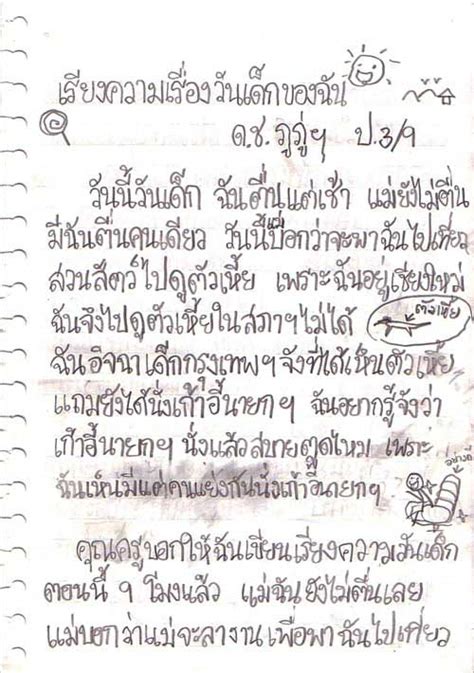 เรียงความเรื่องวันเด็กของฉัน
ด.ช. ภูภู่ฯ ป.3/9
วันนี้วันเด็ก ฉันตื่นแต่เช้า แม่ยังไม่ตื่น
มีฉันตื่นคนเดียว วันนี้บอกว่าจะพาฉันไปเที่ยว
สวนสัตว์ไปดูตัวเหี้ย เพราะฉันอยู่เชียงใหม่
ฉันจึงไปดูตัวเหี้ยในสภาฯไม่ได้
ตัวเหี้ย
ฉันอิจฉาเด็กกรุงเทพฯ จังที่ได้เห็นตัวเหี้ย
แถมยังได้นั่งเก้าอี้นายกฯ ฉันอยากรู้จังว่า
เก้าอี้นายกฯ นั่งแล้วสบายตูดไหม เพราะ
ฉันเห็นมีแต่คนแย่งกันนั่งเก้าอี้นายกฯ
คุณครูบอกให้ฉันเขียนเรียงความวันเด็ก
ตอนนี้ 9 โมงแล้ว แม่ฉันยังไม่ตื่นเลย
แม่บอกว่าแม่จะลางานเพื่อพาฉันไปเที่ยว